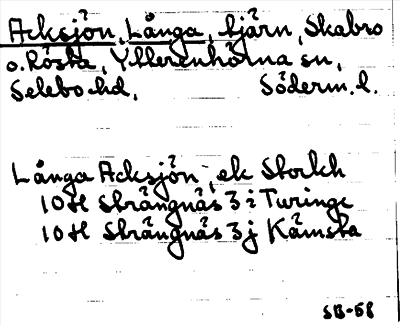 Acksjön, Långa, tjärn, Skabro
o. Rösta, Ytterenhörna sn,
Selebo hd, Söderm. l.
Långa Acksjön, ek Storkh
10H Strängnäs 3 i Turinge
10H Strängnäs 3 j Kämsta
SB-68